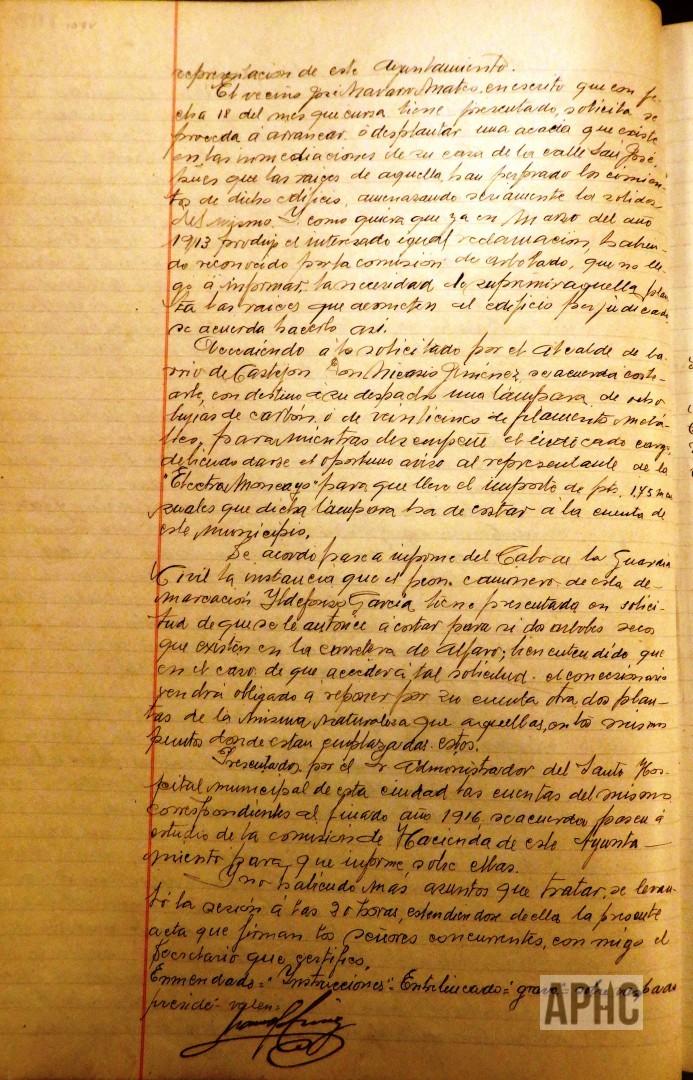 representacion de este Ayuntamiento.
El vecino José Navarro Mateo, en escrito que con fe-
cha 18 del mes que cursa tiene presentado, solicita se
proceda á arrancar ó desplantar una acacia que existe
en las inmediaciones de su casa de la calle San José,
pues que las raices de aquella han perforado los cimien-
tos de dicho edificio, amenazando seriamente la solidez
del mismo. Y como quiera que ya en Marzo del año
1913 produjo el interesado igual reclamacion, habien-
do reconocido por la comision de arbolado, que no lle-
gó á informar, la necesidad de suprimir aquella plan-
ta las raices que acometen al edificio perjudicado
se acuerda hacerlo asi.
Accediendo á lo solicitado por el Alcalde de ba-
rrio de Castejon Don Nicasio Jiménez, se acuerda coste-
arle, con destino a su despacho una lámpara de ocho
bujias de carbón, ó de veinticinco de filamento metá-
lico, para mientras desempeñe el indicado cargo
debiendo darse el oportuno aviso al representante de la
"Electra Moncayo" para que lleve el importe de pts. 1,75 men
suales que dicha lámpara ha de costar á la cuenta de
este Municipio.
Se acordó pase a informe del Cabo de la Guardia
Civil la instancia que el peon caminero de esta de-
marcación Ildefonso García tiene presentada en solici-
tud de que se le autorice á cortar para si dos arboles secos
que existen en la carretera de Alfaro; bien entendido que
en el caso de que accediera á tal solicitud el concesionario
vendrá obligado a reponer por su cuenta otras dos plan-
tas de la misma naturaleza que aquellas, en los mismos
puntos donde estan emplazados estos.
Presentadas por el Sr Administrador del Santo Hos-
pital municipal de esta ciudad las cuentas del mismo
correspondientes al finado año 1916, se acuerda pasen á
estudio de la comision de Hacienda de este Ayunta-
miento para que informe sobre ellas.
Y no habiendo más asuntos que tratar, se levan-
tó la sesión á las 20 horas, extendiendose de ella la presente
acta que firman los señores concurrentes, conmigo el
Secretario que certifico.
Enmendado = "Instrucciones" Entrelineado = "grava" sobre raspado
presidé valen =
APHC